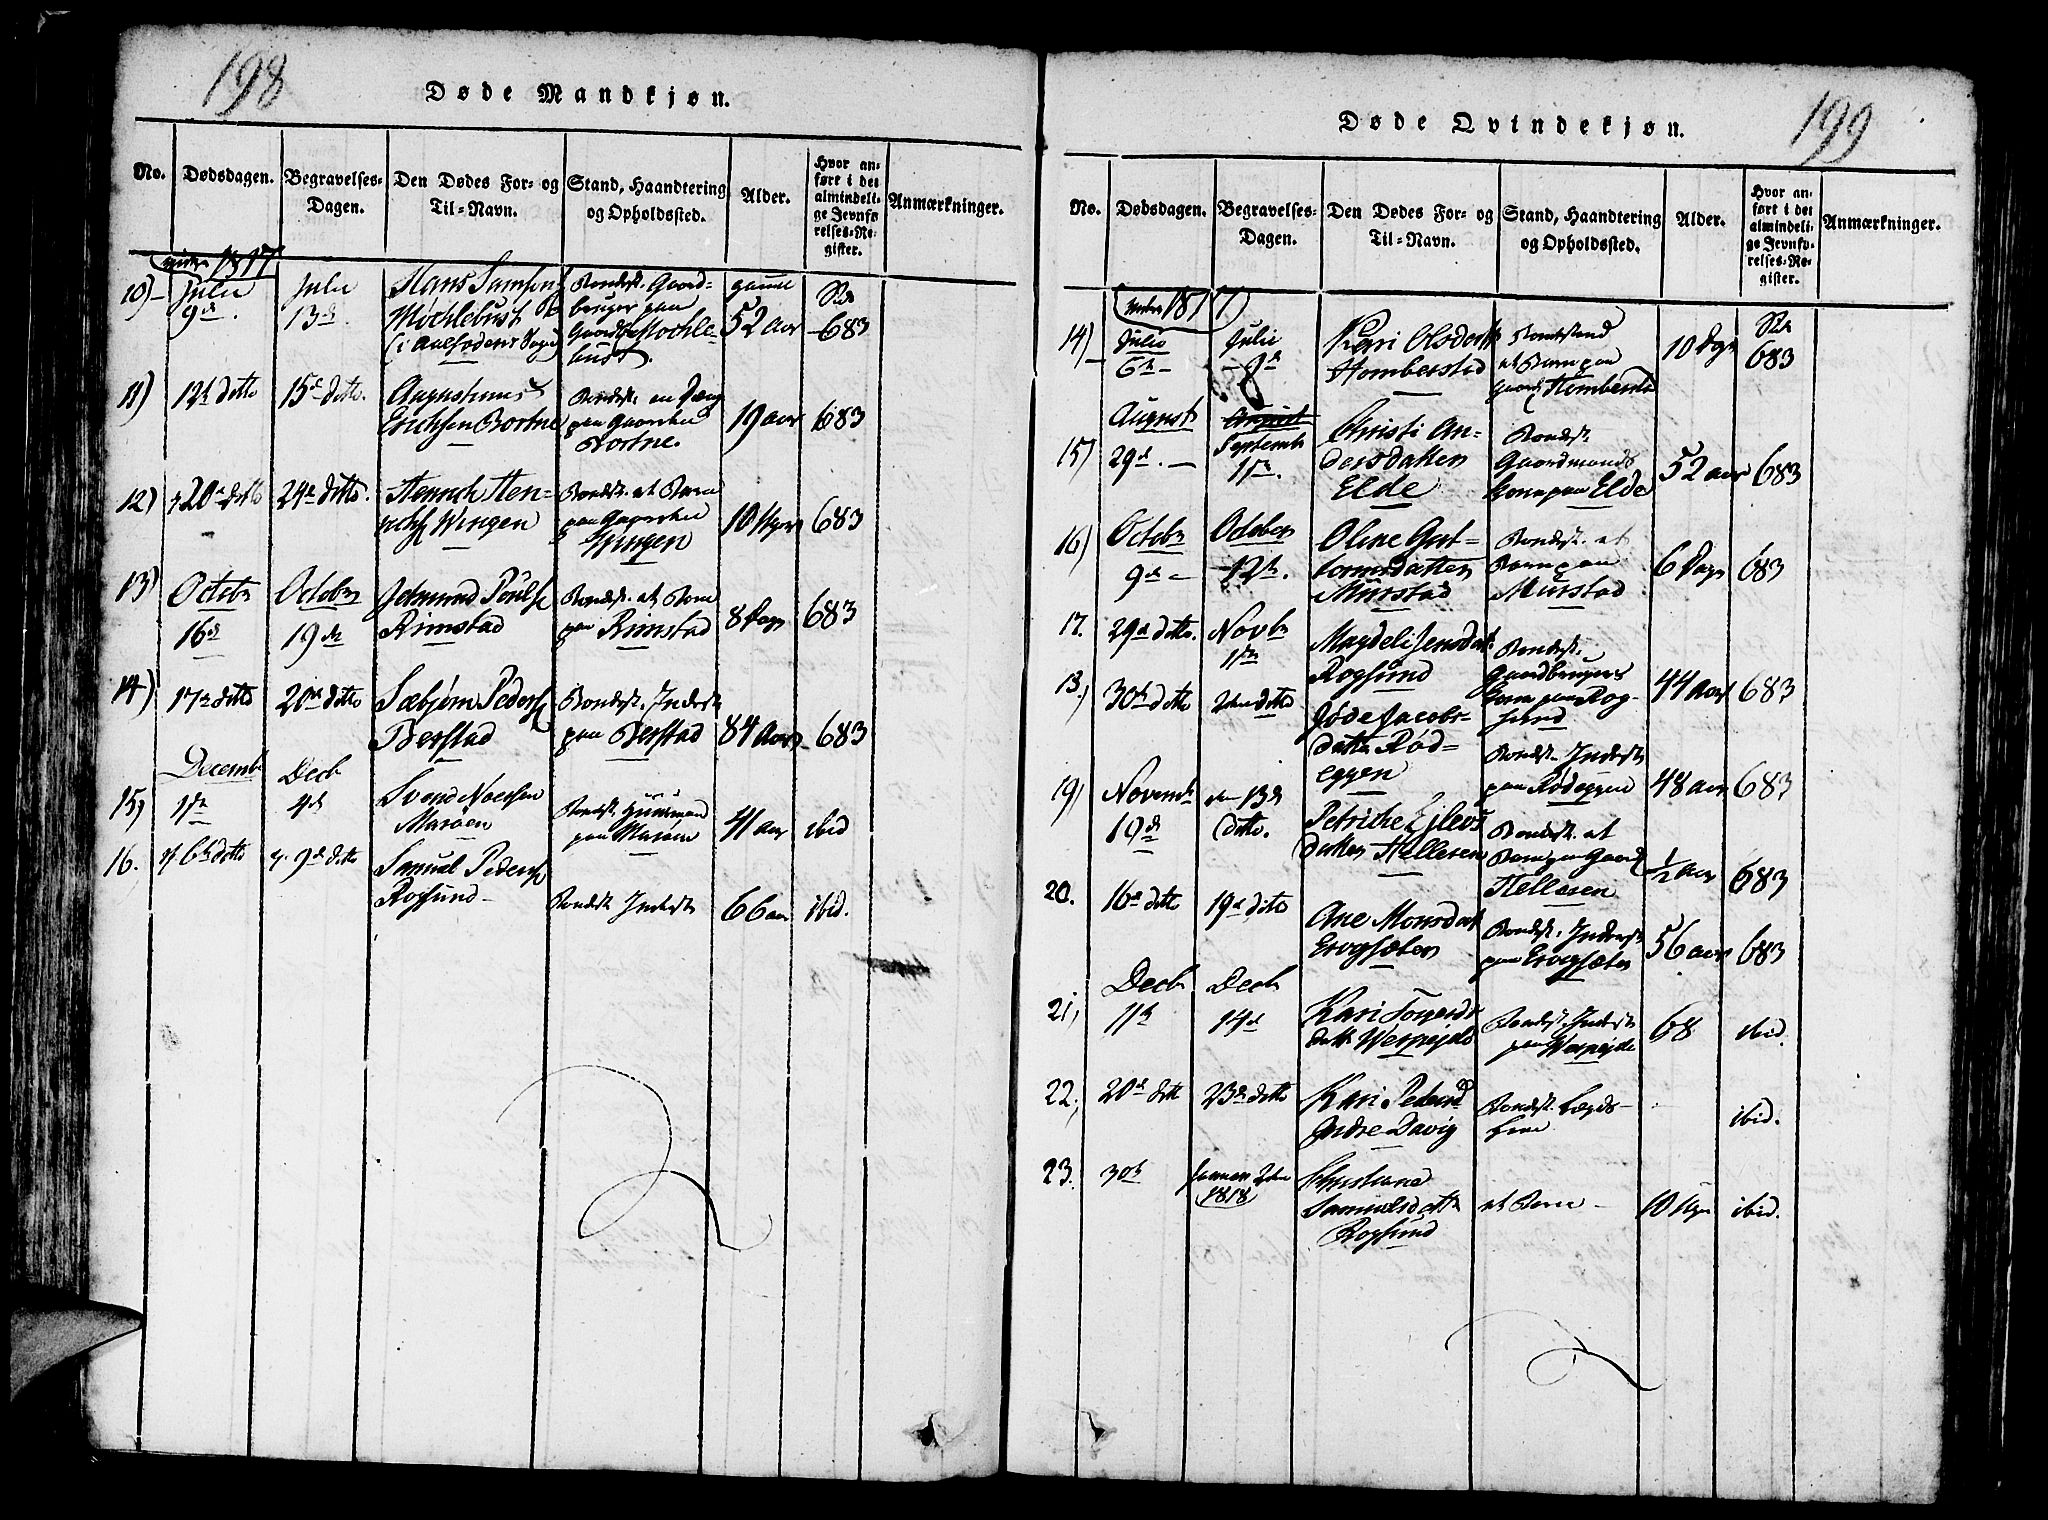 198
Døde Mandkjøn.
No.
Dødsdagen.
Begravelses-
Dagen.
Den Dødes For- og
Til-Navn.
Stand, Haandtering
og Opholdssted.
Alder.
Hvor an-
ført i det
almindeli-
ge Jevnfø
relses-Re-
gister.
Anmærkninger.
1817
10)
Julii
9de
Julii
13de
Hans Samsen
Møchlebust
Bondest. Gaard-
bruger paa
Gaarden Mochle-
bust.
gamel
52 aar
683
11)
12te ditto
15de ditto
Augustinus
Erichsen Bortne
Bondest. en Dreng
paa Gaarden
Bortne.
19 aar
683
12)
20de ditto
24de ditto.
Henrich Hen-
richs Wingen
Bondest. et Barn
paa Gaarden
Wingen
10 Uger
683
13)
Octobr
16de
October
19de
Jetmund Pouls
Rimstad
Bondest. et Barn
paa Rimstad
8 Dage
683
14)
17de ditto
20de ditto
Sæbjørn Peders
Berstad
Bondest. Inderst
paa Berstad
84 Aar
683
15)
Decemb
1ste
Decb
4de
Svend Noessen
Marøen
Bondest. Huusmand
paa Marøen
41 aar
ibid
16.
6te ditto
9de ditto
Samuel Peders
Rogsund
Bondest. Inderst
66 aar
ibid.
199
Døde Qvindekjøn.
No.
Dødsdagen.
Begravelses-
Dagen.
Den Dødes For- og
Til-Navn.
Stand, Haandtering
og Opholdssted.
Alder.
Hvor an-
ført i det
almindeli-
ge Jevnfø-
relses-Re-
gister.
Anmærkninger.
1817
14)
Julii
6te
Julii
Kari Olsdatt
Homberstad
Bondestand
et Barn paa
gaard Homberstad
10 Dage
683
15)
August
29de
September
1ste
Christi An-
dersdatter
Elde
Bondest.
Gaardmands
Kone paa Elde
52 aar
683
16)
Octobr
9de
October
12te.
Oline Gut-
tormsdatter
Mürstad
Bondest. et
Barn paa
Mürstad
6 Dage
683
17.
29de ditto.
Novbr
1ste
Magdeli Jensdatt.
Rogsund
Bondest.
Gaardbrugers
Kone paa Rog-
sund
44 Aar
683
18.)
30te ditto
2den ditto
Jøde Jacobs-
datter Rød-
eggen
Bondest. Inderst
paa Rødeggen
48 aar
683
19)
Novemb
10de
den 13de
ditto.
Petriche Ejlevs
datter Hellesen
Bondest. et
Barn paa Gaard
Hellesen
1/2 Aar
683
20.
16de ditto
19de ditto
Ane Monsdat
Ervogsæter
Bondest. Inderst
paa Ervogsæter
56 aar
683
21)
Decbr
11te
Decbr
14de
Kari
datt.
Bondest. Inderst
paa
68
ibid.
22.
20de ditt
23de ditto
Kari Pedersd
Indre Davig
Bondest. Lægds-
Lem
ibid.
23.
30te
Januar 2den
1818
Christiane
Samuelsdatt
Rogsund
et Barn
10 Uger
ibid.